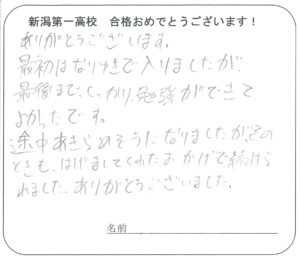 新潟第一高校　合格おめでとうございます！
ありがとうございます。
最初はなりゆきで入りましたが、
最後まで、しっかり勉強ができて
よかったです。
途中あきらめそうになりましたが、その
ときも、はげましてくれたおかげで続けら
れました。ありがとうございました。
名前